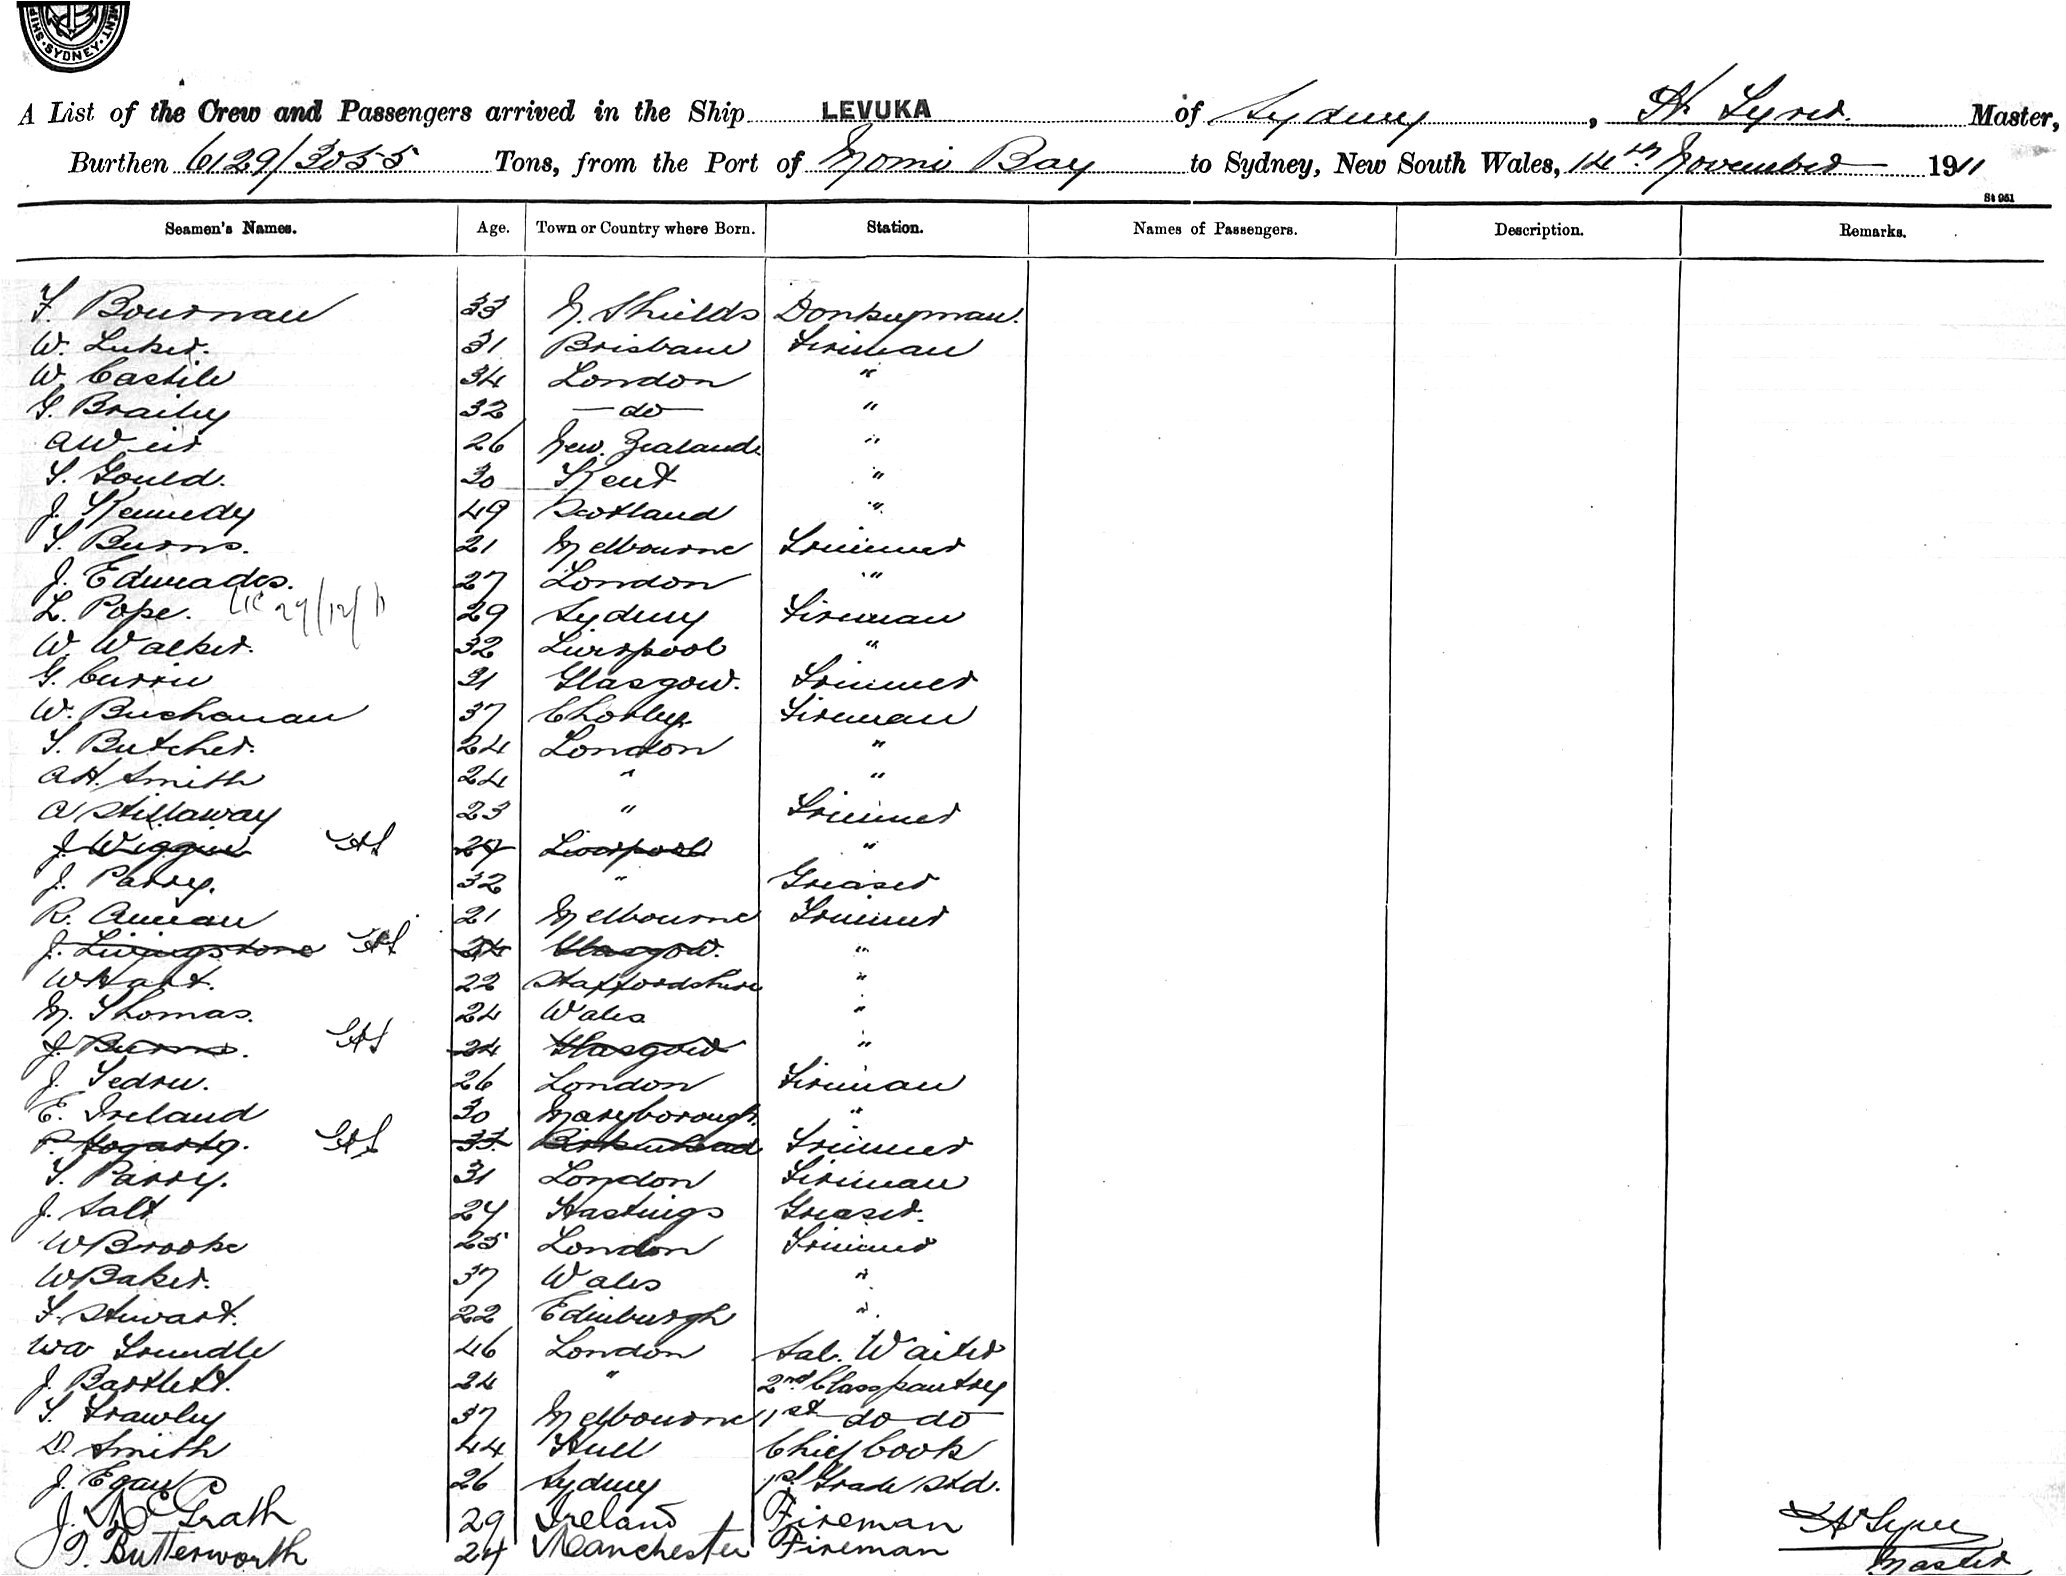 MENT · SYDNEY · SHIP
A List of the Crew and Passengers arrived in the Ship LEVUKA of Sydney, H Syrer. Master,
Burthen 6129/3055 Tons, from the Port of Nomi Bay to Sydney, New South Wales, 14th November 1911
St 951
Seamen's Names. Age. Town or Country where Born. Station. Names of Passengers. Description. Remarks.
F. Bournan 33 N. Shields Donkeyman.
W. Luker. 31 Brisbane Fireman
W. Castile 34 London "
G. Brailey 32 — do — "
A Weir 26 New Zealand "
T. Gould. 30 Kent "
J. Kennedy 49 Scotland "
T. Burns. 21 Melbourne Trimmer
J. Edwades. 27 London "
L. Pope. 29/12/11 29 Sydney Fireman
W. Walker. 32 Liverpool "
G. Currie 31 Glasgow. Trimmer
W. Buchanan 37 Chorley. Fireman
T. Butcher. 24 London "
A H. Smith 24 " "
A Stillaway 23 " Trimmer
J. Wiggin 27 Liverpool "
J. Parry. 32 " Greaser
R. Annan 21 Melbourne Trimmer
J. Livingstone 24 Glasgow. "
W Hart. 22 Staffordshire "
M. Thomas. 24 Wales "
J. Burns. 24 Glasgow "
J. Tedru. 26 London Fireman
E. Ireland 30 Maryborough. "
P. Hogarty. 33 Birkenhead Trimmer
T. Parry. 31 London Fireman
J. Salt 27 Hastings Greaser.
W Brooke 25 London Trimmer
W Baker. 37 Wales "
F. Stewart. 22 Edinburgh "
W A Trundle 46 London Sal. Waiter
J. Bartlett. 24 " 2nd Class pantry
T. Frawley 37 Melbourne 1st do do
D. Smith 44 Hull Chief Cook
J. Egan 26 Sydney 1st Grade Std.
J. McGrath 29 Ireland Fireman
J. Butterworth 24 Manchester Fireman
H Syrer
Master